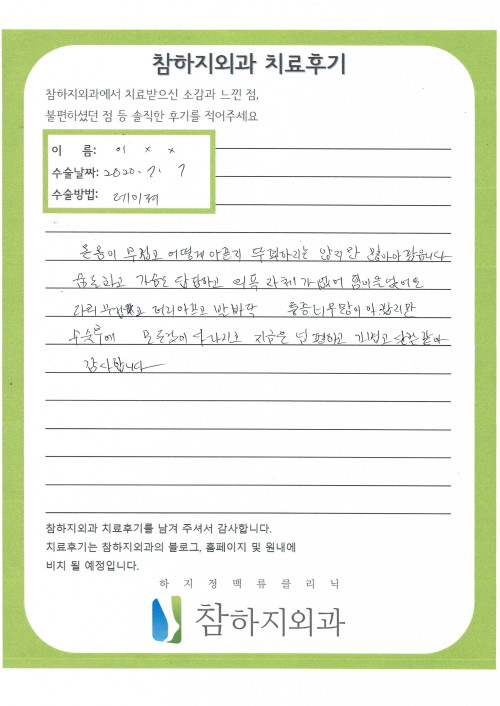 참하지외과 치료후기
참하지외과에서 치료받으신 소감과 느낀 점,
불편하셨던 점 등 솔직한 후기를 적어주세요
이 름: 이 x x
수술날짜: 2020. 7. 7
수술방법: 레이져
온몸이 무겁고 어떻게 아픈지 뚜렷하지는 않지만 많이 아팠습니다
숨도차고 가슴도 답답하고 의욕 자체가 없어 힘이들었어요
다리 무겁고 머리아프고 발바닥 통증 너무많이 아팠지만
수술후에 모든것이 사라지고 지금은 넘 편하고 가볍고 살것같아
감사합니다
참하지외과 치료후기를 남겨 주셔서 감사합니다.
치료후기는 참하지외과의 블로그, 홈페이지 및 원내에
비치 될 예정입니다.
하지정맥류클리닉
참하지외과